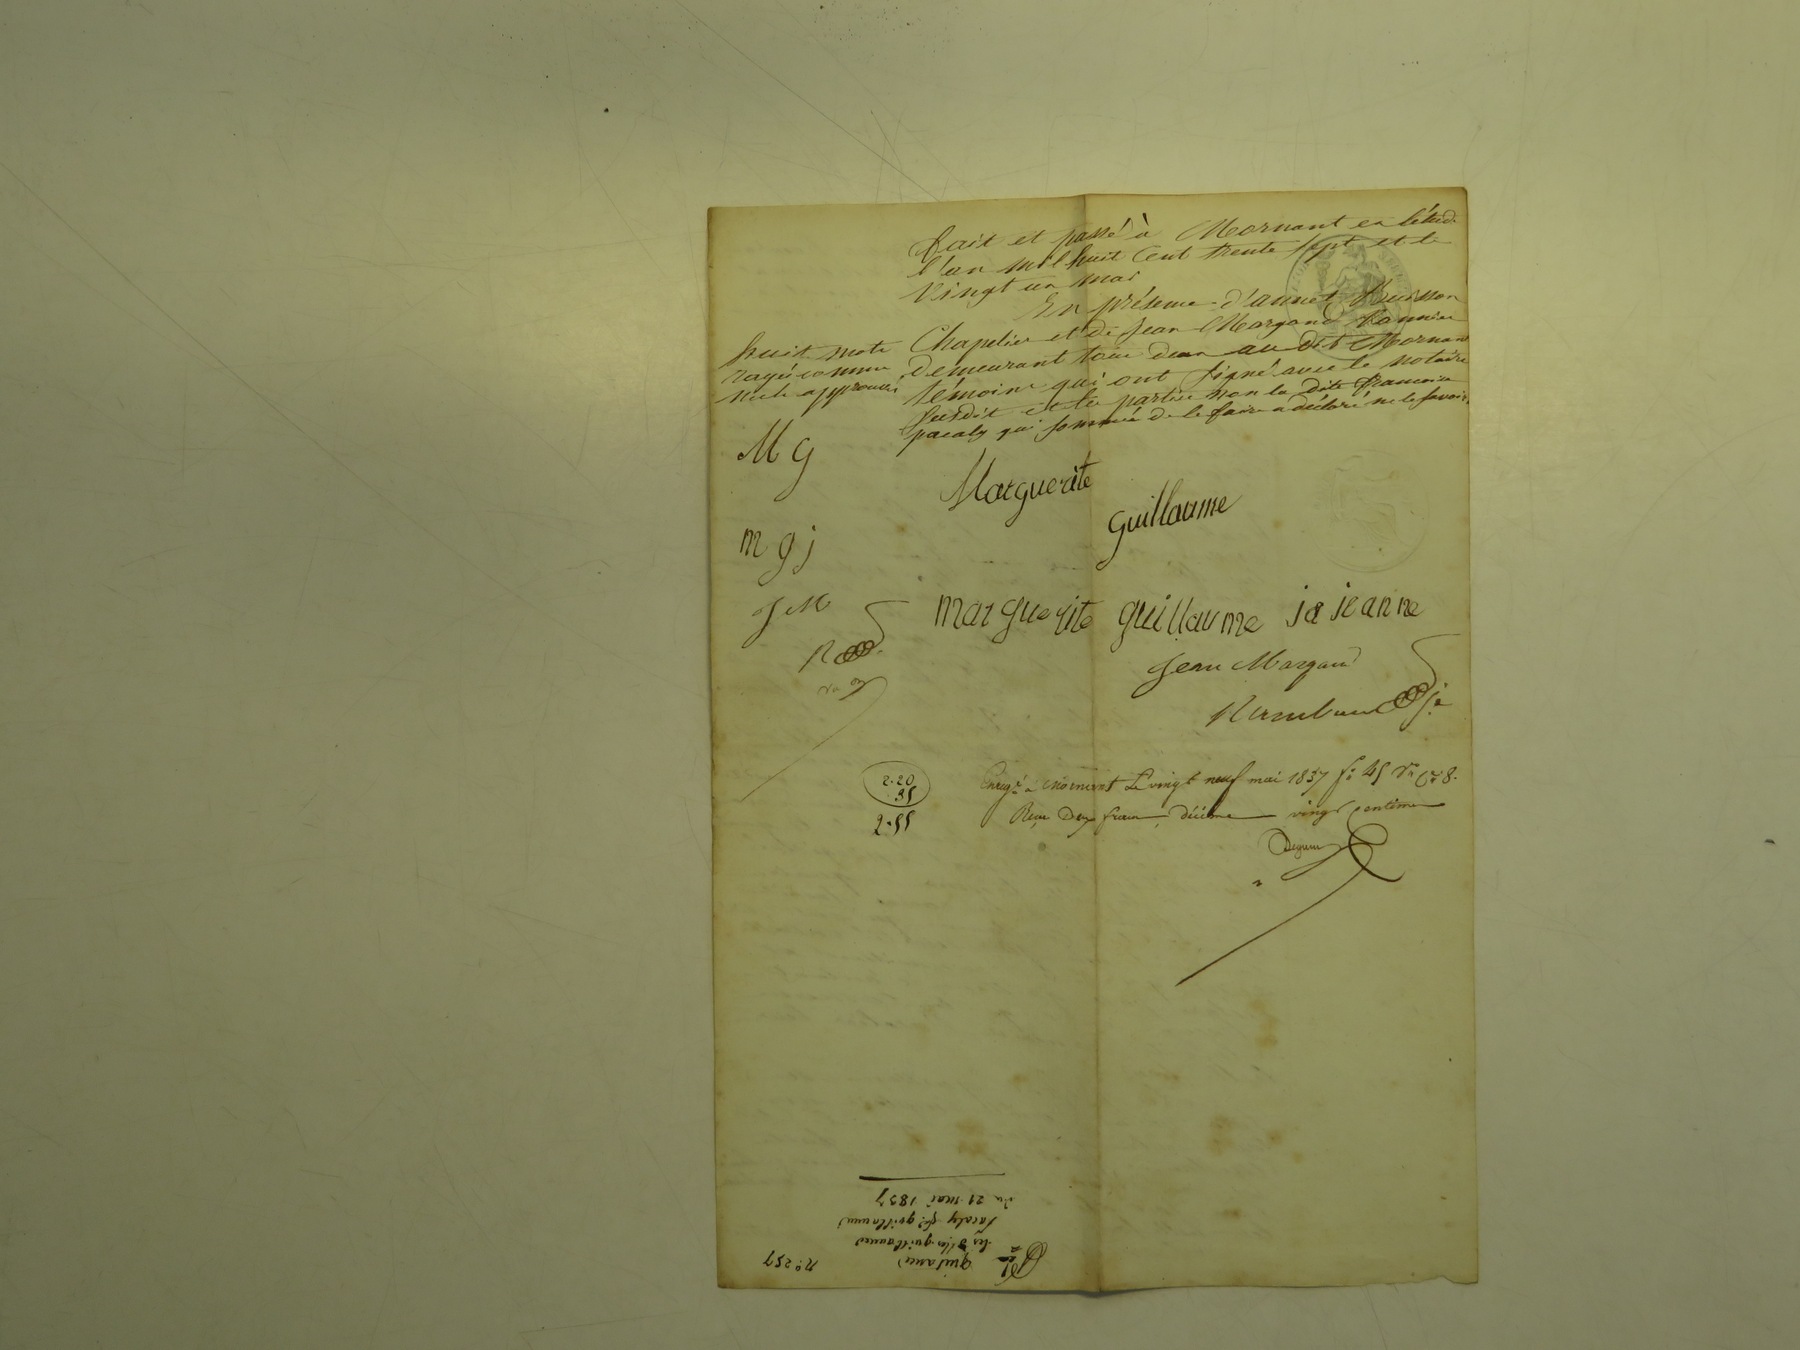 fait et passé à Mornant en l'étude
l'an mil huit Cent trente sept et le
Vingt un mai
En présence d'annet Buisson
Chapelier et de Jean Margand
demeurant tous deux au dit Mornant
témoins qui ont signé avec le notaire
susdit et les parties non la dite francoise
pacaly qui sommée de le faire a déclaré ne le savoir.
huit mots
rayés comme
nuls approuvés
M g
m g j
J M
R
Marguerite
guillaume
marguerite guillaume ja jeanne
Jean Margand
2-20
35
2-55
Enreg.é a mornant Le vingt neuf mai 1837 f.o 45 V.o C.e 8.
Reçu Deux francs, décime vingt centimes
n.o 257
quitance
les d.lles guillaume
pacaly f.e guillaume
du 21 mai 1837